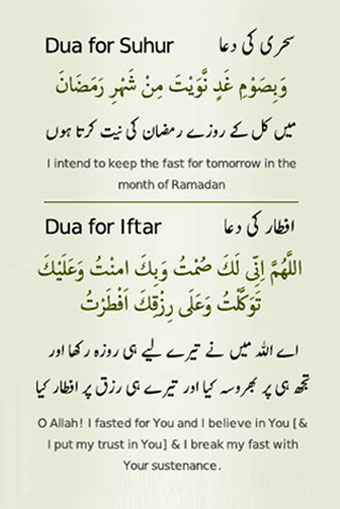 Dua for Suhur سحری کی دعا
وَبِصَوْمِ غَدٍ نَّوَيْتَ مِنْ شَهْرِ رَمَضَانَ
میں کل کے روزے رمضان کی نیت کرتا ہوں
I intend to keep the fast for tomorrow in the
month of Ramadan
Dua for Iftar افطار کی دعا
اللَّهُمَّ اِنِّى لَكَ صُمْتُ وَبِكَ امنْتُ وَعَلَيْكَ
تَوَكَّلْتُ وَعَلَى رِزْقِكَ اَفْطَرْتُ
اے اللہ میں نے تیرے لیے ہی روزہ رکھا اور
تجھ ہی پر بھروسہ کیا اور تیرے ہی رزق پر افطار کیا
O Allah! I fasted for You and I believe in You [&
I put my trust in You] & I break my fast with
Your sustenance.